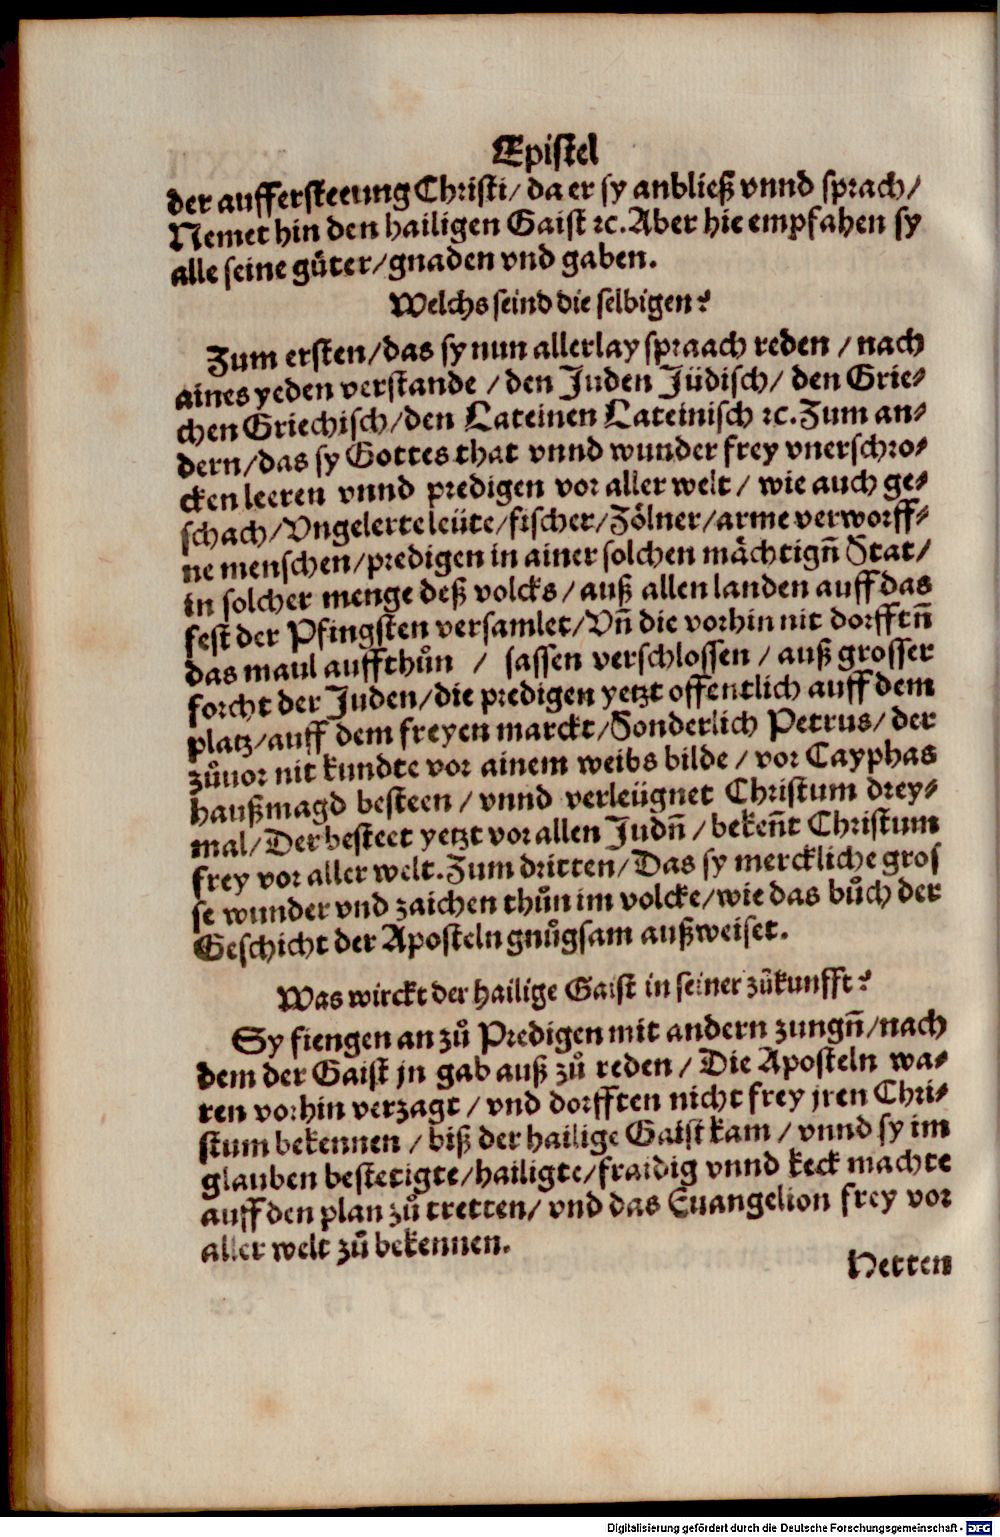 Epistel
der auffersteeung Christi/ da er sy anbließ vnnd sprach/
Nemet hin den hailigen Gaist ꝛc. Aber hie empfahen sy
alle seine gůter/gnaden vnd gaben.
Welchs seind die selbigen?
Zum ersten/das sy nun allerlay spraach reden / nach
aines yeden verstande / den Juden Jüdisch/ den Grie-
chen Griechisch/den Lateinen Lateinisch ꝛc. Zum an-
dern/das sy Gottes that vnnd wunder frey vnerschro-
cken leeren vnnd predigen vor aller welt / wie auch ge-
schach/Vngelerte leüte/fischer/Zölner/arme verworff-
ne menschen/predigen in ainer solchen mächtign̄ Stat/
in solcher menge deß volcks / auß allen landen auff das
fest der Pfingsten versamlet/Vn̄ die vorhin nit dorfftn̄
das maul auffthůn / sassen verschlossen / auß grosser
forcht der Juden/die predigen yetzt offentlich auff dem
platz/auff dem freyen marckt/Sonderlich Petrus/ der
zůuor nit kundte vor ainem weibs bilde / vor Cayphas
haußmagd besteen / vnnd verleügnet Christum drey-
mal/ Der besteet yetzt vor allen Judn̄ / beken̄t Christum
frey vor aller welt. Zum dritten/ Das sy merckliche gros
se wunder vnd zaichen thůn im volcke/wie das bůch der
Geschicht der Aposteln gnůgsam außweiset.
Was wirckt der hailige Gaist in seiner zůkunfft?
Sy fiengen an zů Predigen mit andern zungn̄/nach
dem der Gaist jn gab auß zů reden / Die Aposteln wa-
ren vorhin verzagt / vnd dorfften nicht frey jren Chri-
stum bekennen / biß der hailige Gaist kam / vnnd sy im
glauben bestetigte/hailigte/fraidig vnnd keck machte
auff den plan zů tretten/ vnd das Euangelion frey vor
aller welt zů bekennen.
Hetten
Digitalisierung gefördert durch die Deutsche Forschungsgemeinschaft - DFG